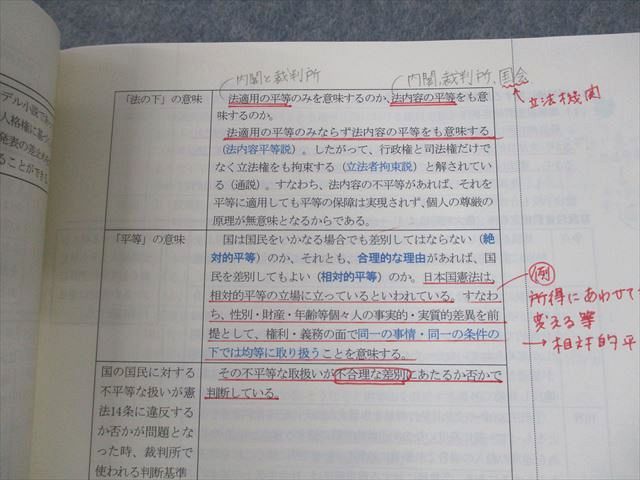 デル小説でプ
人格権に基づ
発表の差え止め
ることができる
内閣と裁判所
内閣、裁判所、国会
立法機関
「法の下」の意味
法適用の平等のみを意味するのか、法内容の平等をも意
味するのか。
法適用の平等のみならず法内容の平等をも意味する
（法内容平等説）。したがって、行政権と司法権だけで
なく立法権をも拘束する（立法者拘束説）と解されてい
る（通説）。すなわち、法内容の不平等があれば、それを
平等に適用しても平等の保障は実現されず、個人の尊厳の
原理が無意味となるからである。
「平等」の意味
国は国民をいかなる場合でも差別してはならない（絶
対的平等）のか、それとも、合理的な理由があれば、国
民を差別してもよい（相対的平等）のか。日本国憲法は、
相対的平等の立場に立っているといわれている。すなわ
ち、性別・財産・年齢等個々人の事実的・実質的差異を前
提として、権利・義務の面で同一の事情・同一の条件の
下では均等に取り扱うことを意味する。
例
所得にあわせて
変える等
→相対的平
国の国民に対する
不平等な扱いが憲
法14条に違反する
か否かが問題とな
った時、裁判所で
使われる判断基準
その不平等な取扱いが不合理な差別にあたるか否かで
判断している。